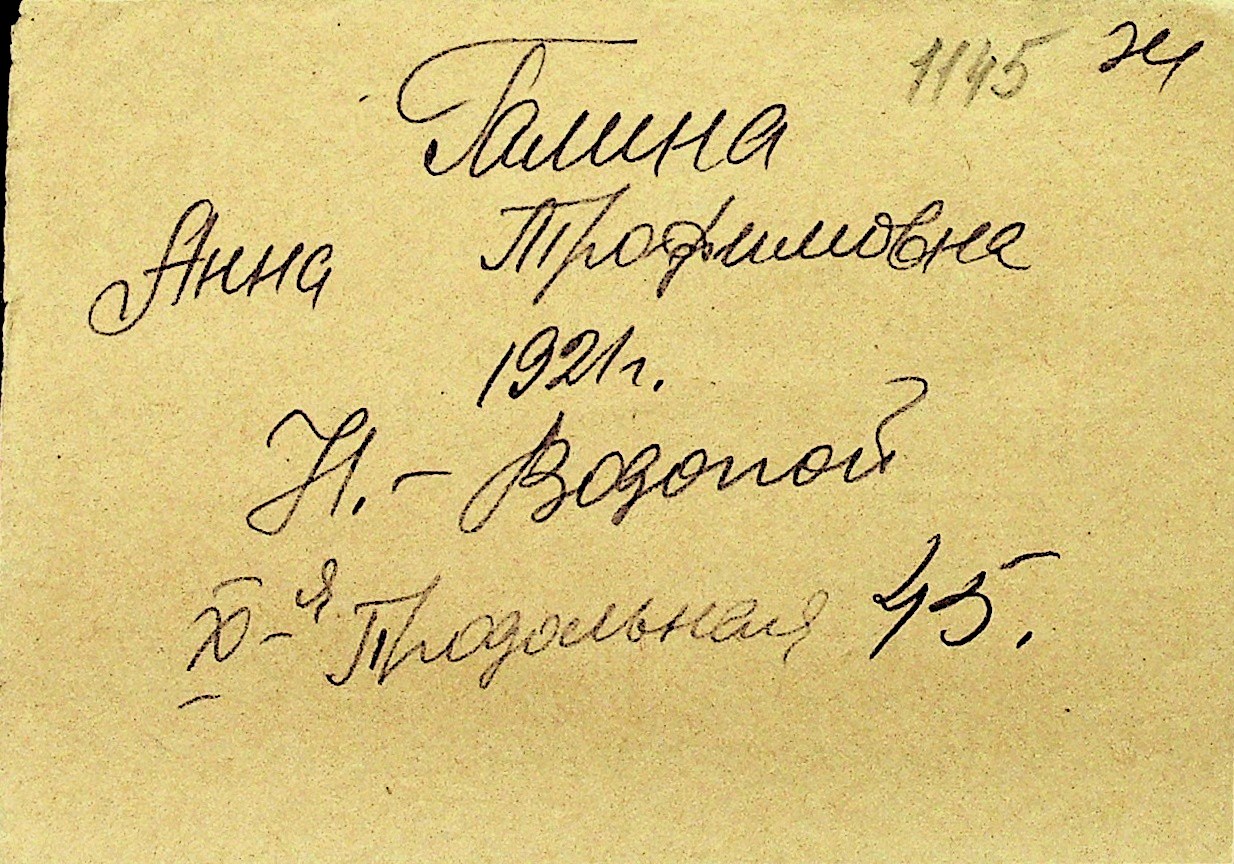 1145 ж
Галина
Анна Трофимовна
1921г.
Н. - Водопой
X-я Продольная 45.